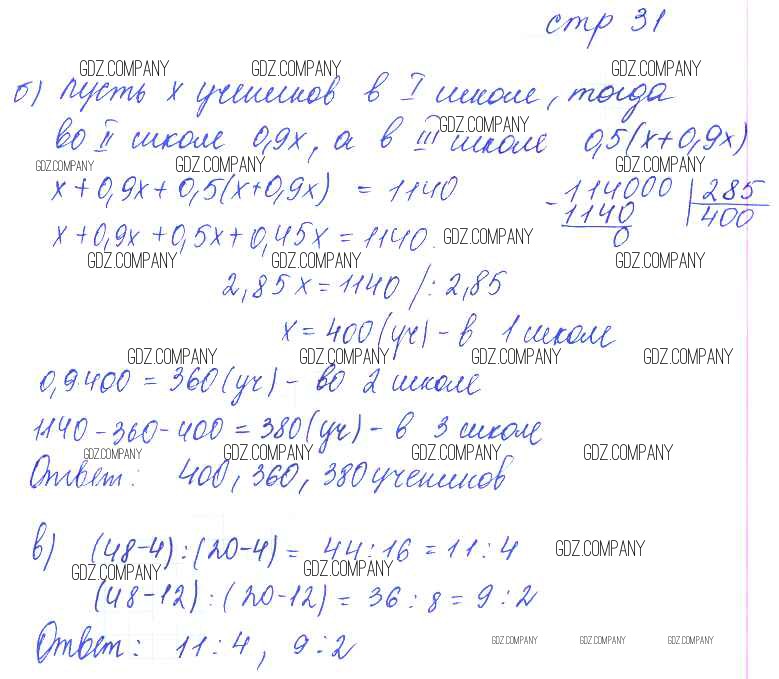 стр 31
GDZ.COMPANY GDZ.COMPANY GDZ.COMPANY
б) пусть x учеников в I школе, тогда
GDZ.COMPANY
во II школе 0,9x, а в III школе 0,5(x+0,9x)
GDZ.COMPANY GDZ.COMPANY GDZ.COMPANY
x+0,9x+0,5(x+0,9x) = 1140
114000 | 285
- 1140 400
0
x+0,9x+0,5x+0,45x=1140. GDZ.COMPANY
GDZ.COMPANY GDZ.COMPANY GDZ.COMPANY
2,85x=1140 /:2,85
x=400(уч)-в 1 школе
GDZ.COMPANY GDZ.COMPANY GDZ.COMPANY GDZ.COMPANY
0,9·400=360(уч)-во 2 школе
1140-360-400=380(уч)-в 3 школе
GDZ.COMPANY GDZ.COMPANY GDZ.COMPANY GDZ.COMPANY
Ответ: 400, 360, 380 учеников
в) (48-4):(20-4)= 44:16=11:4 GDZ.COMPANY
GDZ.COMPANY GDZ.COMPANY
(48-12):(20-12)=36:8=9:2
Ответ: 11:4, 9:2
GDZ.COMPANY GDZ.COMPANY GDZ.COMPANY